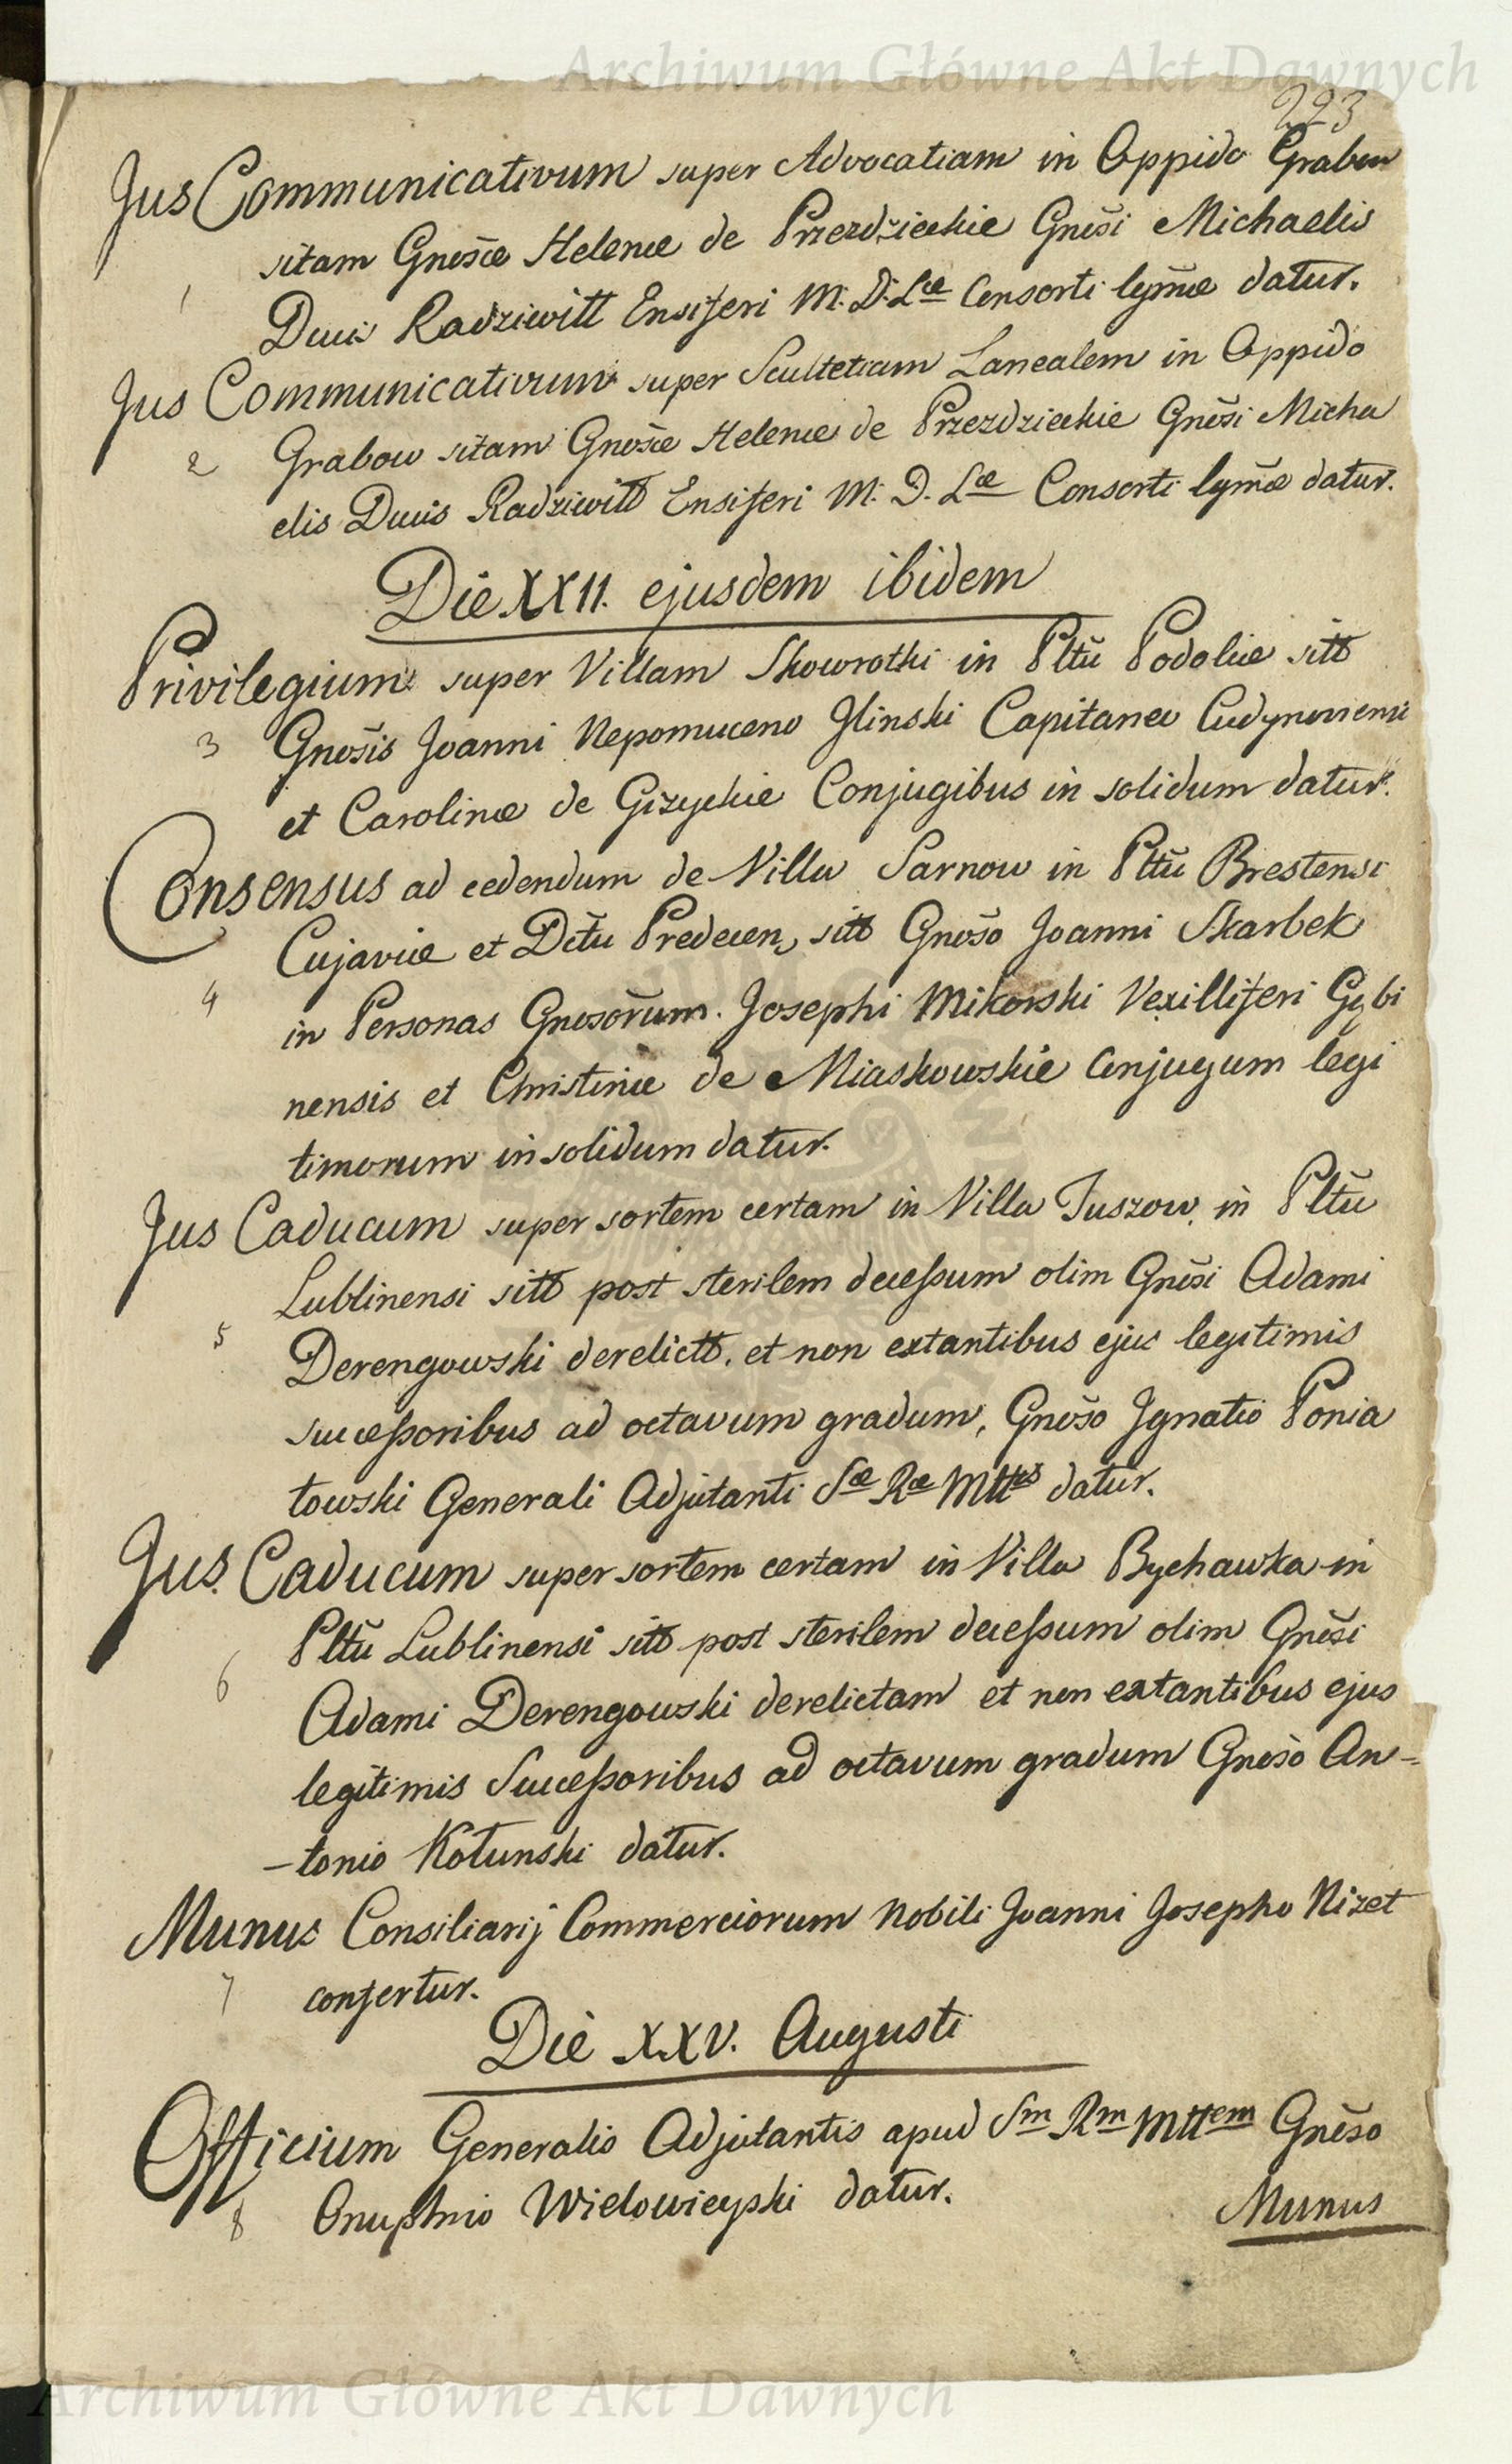 Archiwum Główne Akt Dawnych
223
Jus Communicativum super Advocatiam in Oppido Grabow
1 sitam Gnosæ Helenæ de Przezdzieckie Gnosi Michaelis
Ducis Radziwitt Ensiferi M. D. Læ Consorti lgmæ datur.
Jus Communicativum super Scultetiam Lanealem in Oppido
2 Grabow sitam Gnosæ Helenæ de Przezdzieckie Gnosi Micha
elis Ducis Radziwitt Ensiferi M. D. Læ Consorti lgmæ datur.
Die XXII. ejusdem ibidem
Privilegium super Villam Skowrotki in Pltũ Podoliæ sitt
3 Gnosis Joanni Nepomuceno Jlinski Capitaneo
et Carolinæ de Gizyckie Conjugibus in solidum datur.
Consensus ad cedendum de Villa Sarnow in Pltũ Brestensi
Cujaviæ et Dctũ Predecen, sitt Gnoso Joanni Skarbek
4 in Personas Gnosorum. Josephi Mikorski Vexilliferi Gąbi
nensis et Christinæ de Miaskowskie Conjugum legi
timorum in solidum datur.
Jus Caducum super sortem certam in Villa Tuszow in Pltũ
Lublinensi sitt post sterilem decessum olim Gnosi Adami
5 Derengowski derelictt. et non extantibus ejus legitimis
successoribus ad octavum gradum, Gnoso Jgnatio Ponia
towski Generali Adjutanti Sæ Ræ Mttis datur.
Jus Caducum super sortem certam in Villa Bychawka in
Pltũ Lublinensi sitt post sterilem decessum olim Gnosi
6 Adami Derengowski derelictam et non extantibus ejus
legitimis Successoribus ad octavum gradum Gnoso An-
-tonio Kotunski datur.
Munus Consiliarij Commerciorum Nobili Joanni Josepho Nizet
7 confertur.
Die XXV. Augusti
Officium Generalis Adjutantis apud Sm Rm Mttem Gnoso
8 Onuphrio Wielowieyski datur.
Munus
Archiwum Główne Akt Dawnych